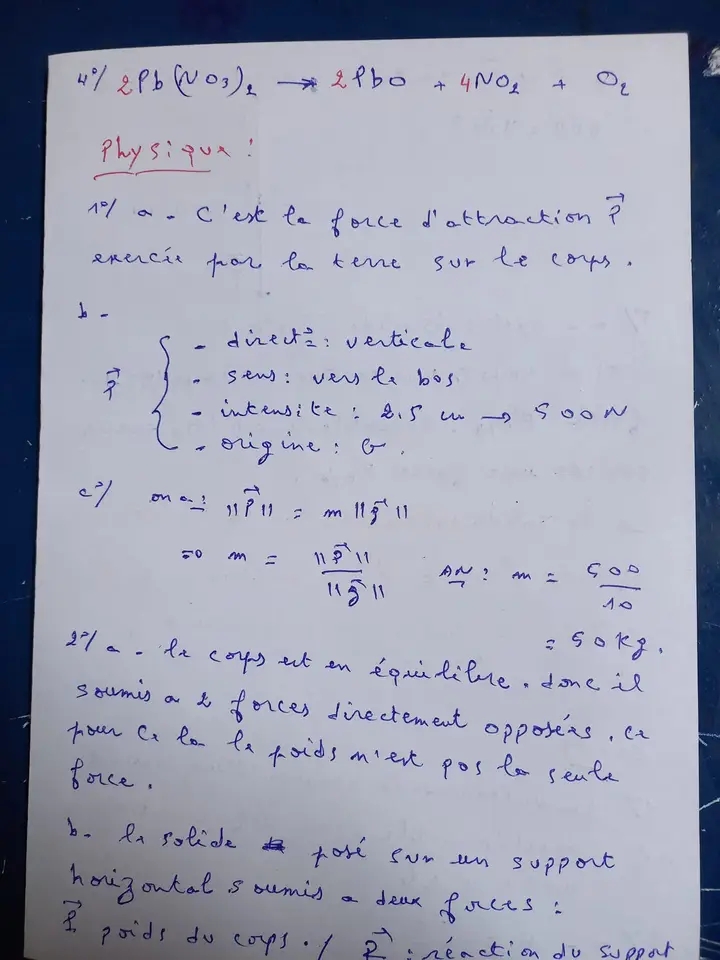 4°/ 2Pb(NO3)2 → 2PbO + 4NO2 + O2
Physique :
1°/ a - C'est la force d'attraction P⃗
exercée par la terre sur le corps.
b -
- direct°: verticale
P⃗ { - sens: vers le bas
- intensité : 2.5 cm → 500N
- origine : G.
c°/ on a: ||P⃗|| = m ||g⃗||
=> m = ||P⃗|| / ||g⃗|| AN: m = 500 / 10
= 50kg.
2°/ a - le corps est en équilibre. donc il
soumis a 2 forces directement opposées. ce
pour ce la le poids n'est pas la seule
force.
b - le solide posé sur un support
horizontal soumis a deux forces :
P⃗ poids du corps. / R⃗ : réaction du support